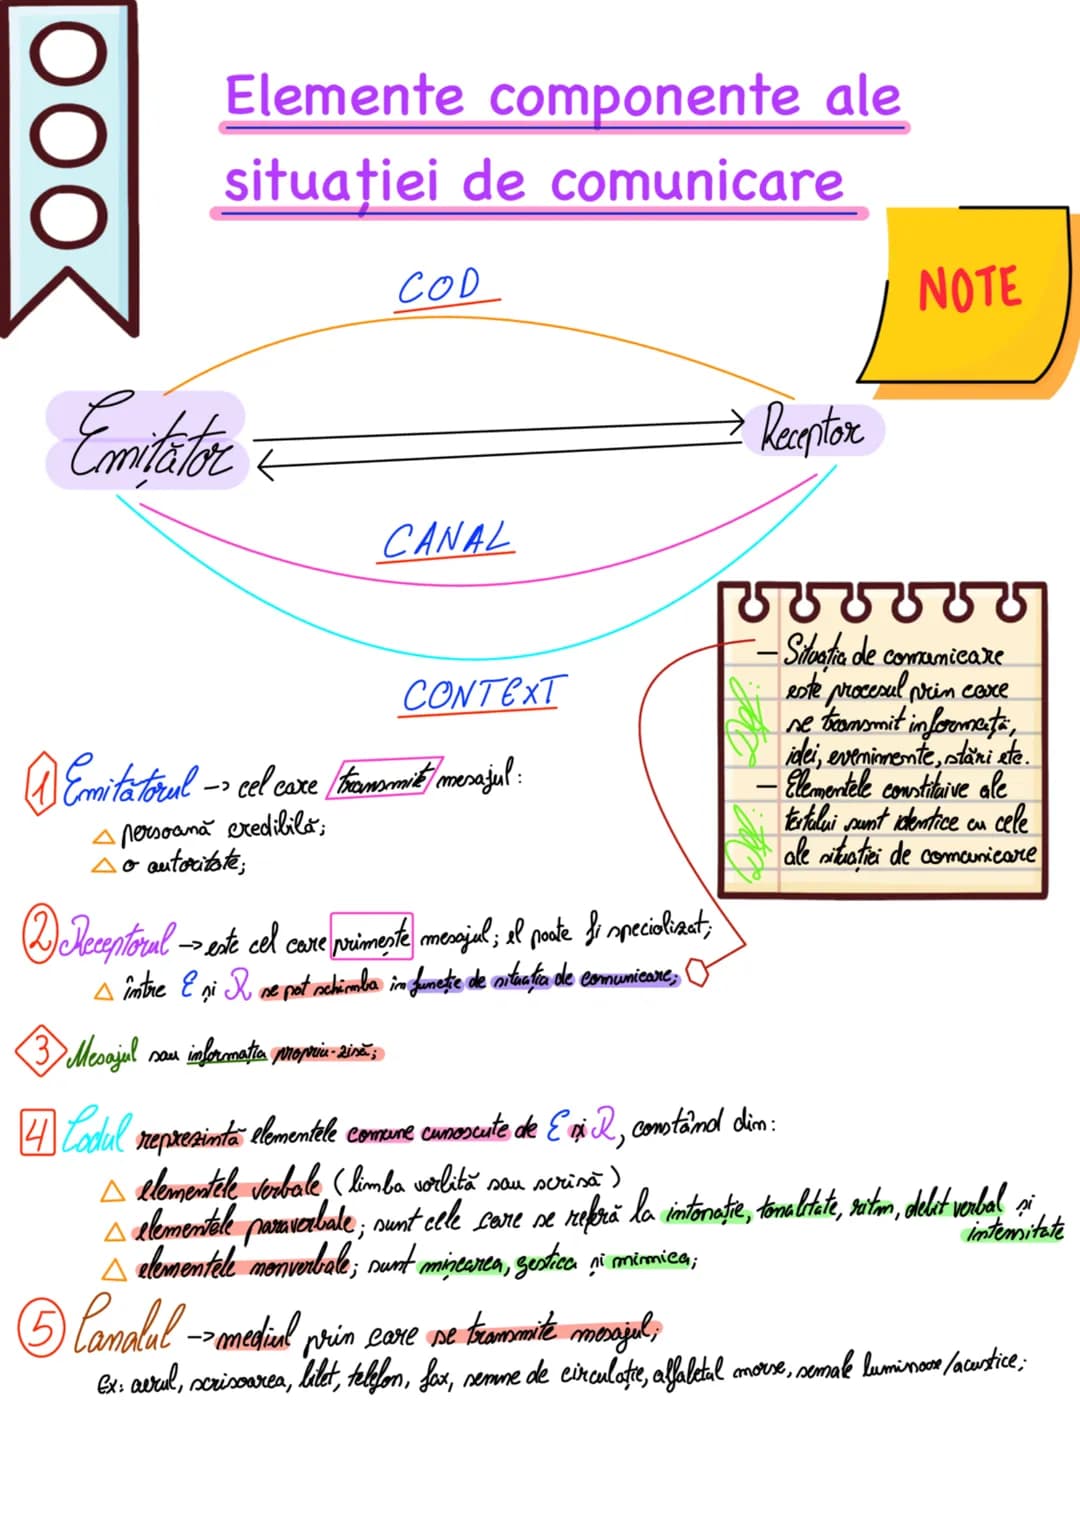 Elemente componente ale
situației de comunicare
NOTE
COD
Emițător
Receptor
CANAL
CONTEXT
Def:
– Situația de comunicare
este procesul prin care
se transmit informații,
idei, evenimente, stări etc.
Def:
– Elementele constituive ale
textului sunt identice cu cele
ale situației de comunicare
1 Emițătorul -> cel care transmite mesajul:
persoană credibilă;
o autoritate;
2 Receptorul -> este cel care primește mesajul; el poate fi specializat;
între E și R se pot schimba în funcție de situația de comunicare;
3 Mesajul sau informația propriu-zisă;
4 Codul reprezintă elementele comune cunoscute de E și R, constând din:
elementele verbale (limba vorbită sau scrisă)
elementele paraverbale; sunt cele care se referă la intonație, tonalitate, ritm, debit verbal și
intensitate
elementele nonverbale; sunt mișcarea, gestica și mimica;
5 Canalul -> mediul prin care se transmite mesajul;
Ex: aerul, scrisoarea, bilet, telefon, fax, semne de circulație, alfabetul morse, semnale luminoase/acustice;